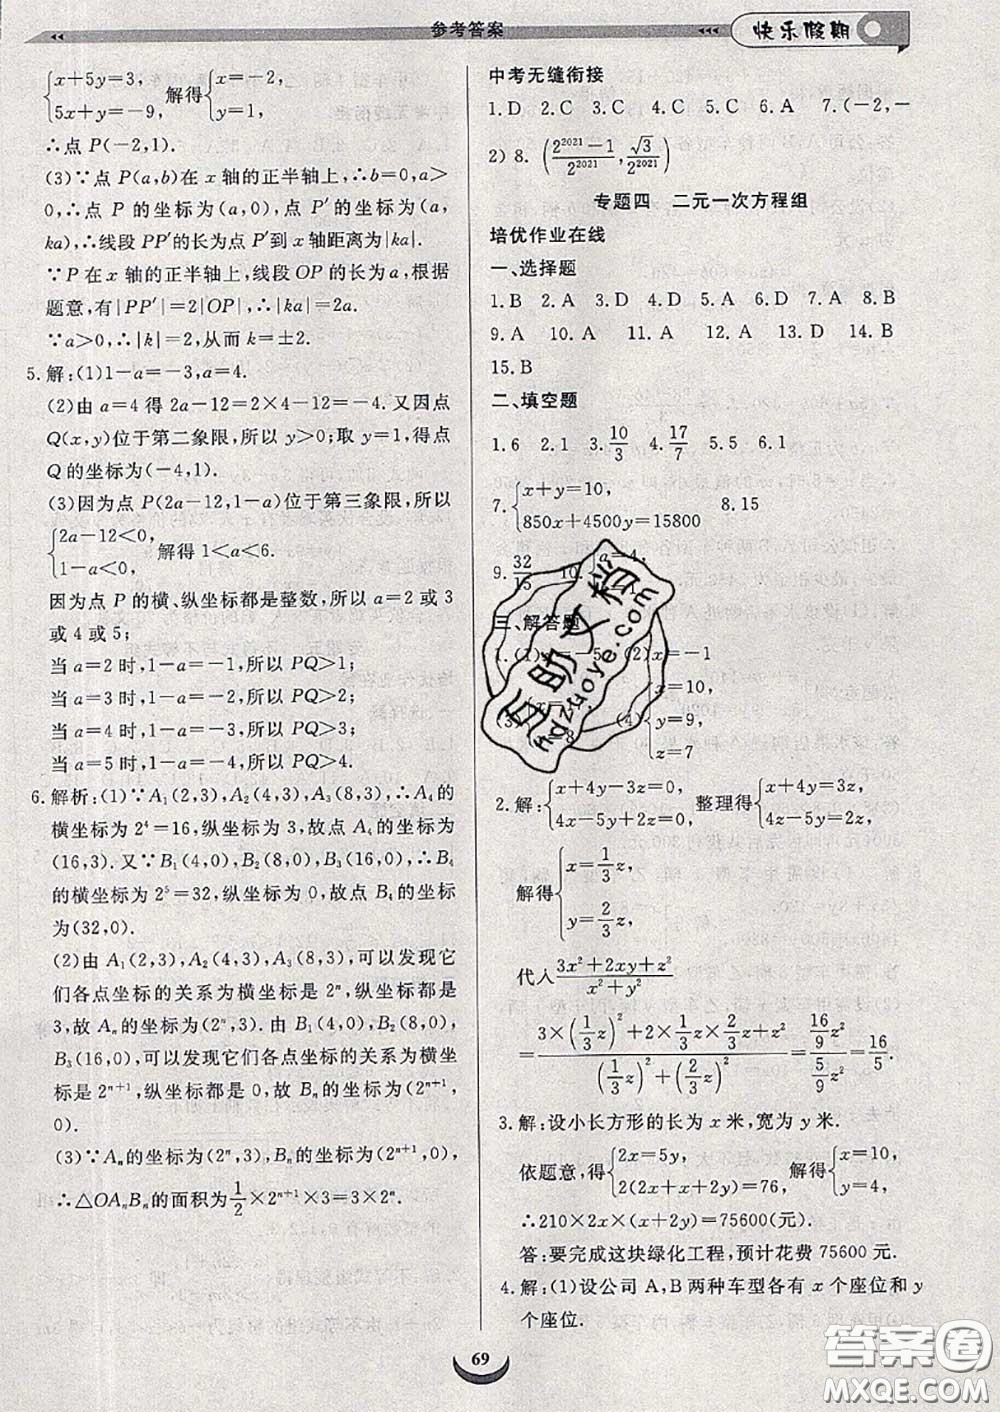 参考答案
快乐假期
{x+5y=3, 5x+y=-9, 解得{x=-2, y=1,
∴点 P(-2,1).
(3)∵点 P(a,b)在 x 轴的正半轴上,∴b=0,a>
0,∴点 P 的坐标为(a,0),点 P′的坐标为(a,
ka),∴线段 PP′的长为点 P′到 x 轴距离为|ka|.
∵P 在 x 轴的正半轴上,线段 OP 的长为 a,根据
题意,有|PP′|=2|OP|,∴|ka|=2a.
∵a>0,∴|k|=2,从而 k=±2.
5.解:(1)1-a=-3,a=4.
(2)由 a=4 得 2a-12=2×4-12=-4.又因点
Q(x,y)位于第二象限,所以 y>0;取 y=1,得点
Q 的坐标为(-4,1).
(3)因为点 P(2a-12,1-a)位于第三象限,所以
{2a-12<0, 1-a<0, 解得 1<a<6.
因为点 P 的横、纵坐标都是整数,所以 a=2 或 3
或 4 或 5;
当 a=2 时,1-a=-1,所以 PQ>1;
当 a=3 时,1-a=-2,所以 PQ>2;
当 a=4 时,1-a=-3,所以 PQ>3;
当 a=5 时,1-a=-4,所以 PQ>4.
6.解析:(1)∵A₁(2,3),A₂(4,3),A₃(8,3),∴A₄的
横坐标为 2⁴=16,纵坐标为 3,故点 A₄的坐标为
(16,3).又∵B₁(4,0),B₂(8,0),B₃(16,0),∴B₄
的横坐标为 2⁵=32,纵坐标为 0,故点 B₄的坐标为
(32,0).
(2)由 A₁(2,3),A₂(4,3),A₃(8,3),可以发现它
们各点坐标的关系为横坐标是 2ⁿ,纵坐标都是
3,故点 Aₙ的坐标为(2ⁿ,3).由 B₁(4,0),B₂(8,0),
B₃(16,0),可以发现它们各点坐标的关系为横坐
标是 2ⁿ⁺¹,纵坐标都是 0,故 Bₙ的坐标为(2ⁿ⁺¹,
0).
(3)∵Aₙ的坐标为(2ⁿ,3),Bₙ的坐标为(2ⁿ⁺¹,0),
∴△OAₙBₙ的面积为1/2×2ⁿ⁺¹×3=3×2ⁿ.
中考无缝衔接
1.D 2.C 3.C 4.C 5.C 6.A 7.(-2,-
2) 8.((2²⁰²¹-1)/2²⁰²¹, √3/2²⁰²¹)
专题四 二元一次方程组
培优作业在线
一、选择题
1.B 2.A 3.D 4.D 5.B 6.D 7.A 8.B
9.A 10.A 11.A 12.A 13.D 14.B
15.B
二、填空题
1.6 2.1 3.10/3 4.17/7 5.5 6.1
7.{x+y=10, 850x+4500y=15800 8.15
9.32/15 10.{a=4,
三、解答题
1.(1) (2){x=-1
(3) (4){ y=9, z=7
2.解:{x+4y-3z=0, 4x-5y+2z=0, 整理得{x+4y=3z, 4x-5y=-2z,
解得{x=1/3z, y=2/3z,
代入(3x²+2xy+z²)/(x²+y²)
=(3×(1/3z)²+2×1/3z×2/3z+z²)/((1/3z)²+(2/3z)²)=(16/9z²)/(5/9z²)=16/5.
3.解:设小长方形的长为 x 米,宽为 y 米.
依题意,得{2x=5y, 2(2x+x+2y)=76, 解得{x=10, y=4,
∴210×2x×(x+2y)=75600(元).
答:要完成这块绿化工程,预计花费 75600 元.
4.解:(1)设公司 A,B 两种车型各有 x 个座位和 y
个座位.
69
互助文档
hdzuoye.com
答案圈
MXQE.COM